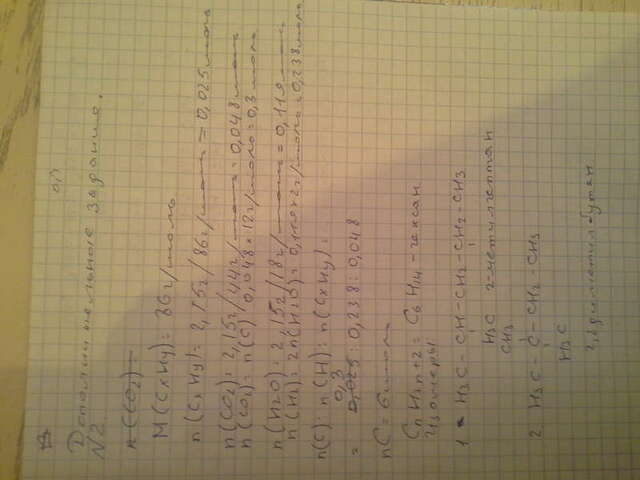 0,3
Дополнительные задание.
N2.
n(CO2)
M(CxHy) = 86г/моль
n(CxHy) = 2,15г/86г/моль = 0,025моль
n(CO2) = 2,15г/44г/моль = 0,048моль
n(CO2) = n(C) 0,048 × 12г/моль = 0,3моль
n(H2O) = 2,15г/18г/моль = 0,119моль
n(H) = 2n(H2O) = 0,119×2г/моль = 0,238моль
n(C) : n(H) : n(CxHy) =
0,3
= 0,025 : 0,238 : 0,048
nC = 6моль
CnH2n+2 = C6H14 - гексан
Изомеры
1. H3C - CH - CH2 - CH2 - CH3
H3C 2-метилпентан
CH3
2. H3C - C - CH2 - CH3
H3C
2,2диметилбутан